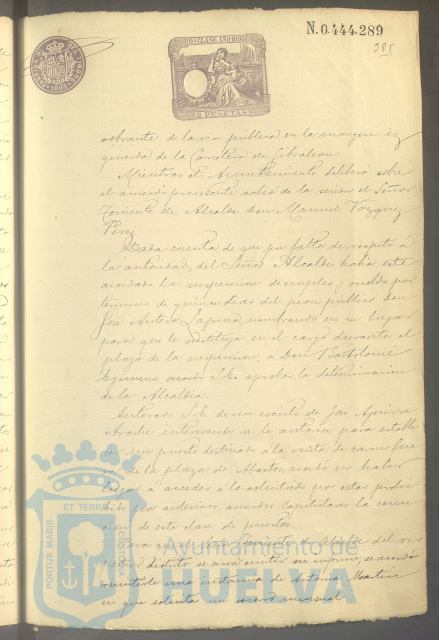 N.0.444.289
385
2 PESETAS
sobrante de la via publica en la margen iz
quierda de la Carretera de Gibraleon.
Mientras el Ayuntamiento deliberó sobre
el asunto precedente salió de la sesion el Señor
Teniente de Alcalde don Manuel Vazquez
Perez
Dada cuenta de que por falta de respeto á
la autoridad del Señor Alcalde habia este
acordado la suspension de empleo y sueldo por
término de quince dias del peon público Don
José Antero Laguna, nombrando en su lugar
para que le sustituya en el cargo durante el
plazo de la suspension, a Don Bartolomé
acordó S.E. aprobar la determinacion
de la Alcaldia.
Enterado S.E. de un escrito de José Aguirre
interesando se le autorice para estable
cer un puesto destinado á la venta de carne
de la plaza de Abastos, acordó no haber
lugar a acceder á lo solicitado por estar prohi
bido por anteriores acuerdos Capitulares la conce
sion de esta clase de puestos.
Para que el Señor Teniente de Alcalde del res
pectivo distrito se sirva emitir su informe, se acordó
remitirle una instancia de Antonio Martin
en que solicita un socorro mensual
PORTUS MARIS
ET TERRAE
CUSTODIA
Ayuntamiento de
HUELVA